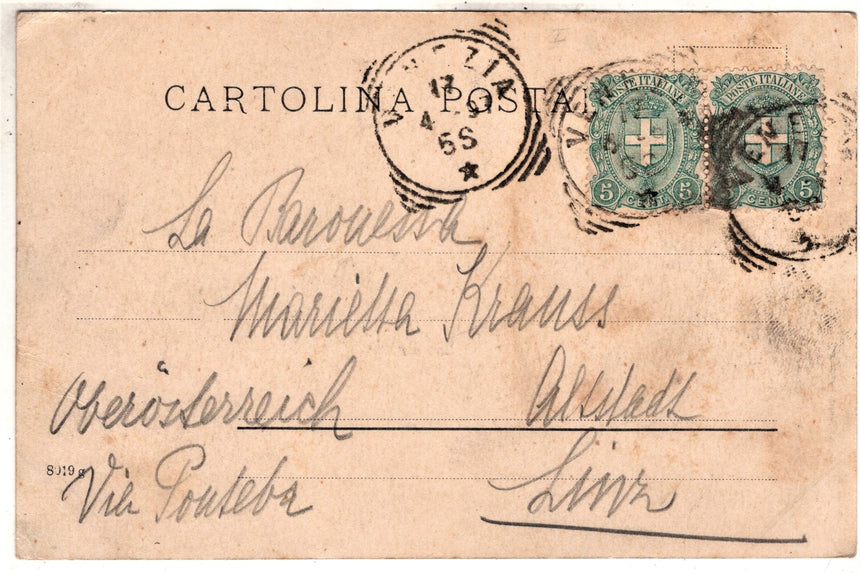 CARTOLINA POSTA
VENEZIA
17
4 - 97
5S
POSTE ITALIANE
5 CENT 5
POSTE ITALIANE
CENT 5
17
La Baronessa
Marietta Krauss
Oberösterreich Altstadt
8019 g
Via Ponteba Linz